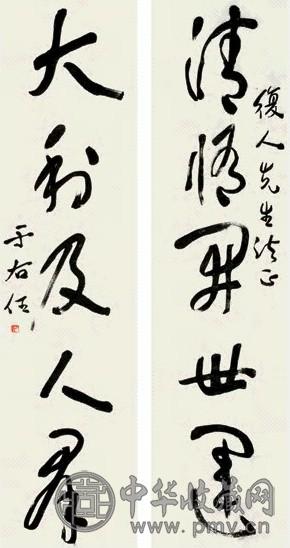 復人先生法正
清開世運
大利及人群
于右任
中华收藏网
www.pmv.cn